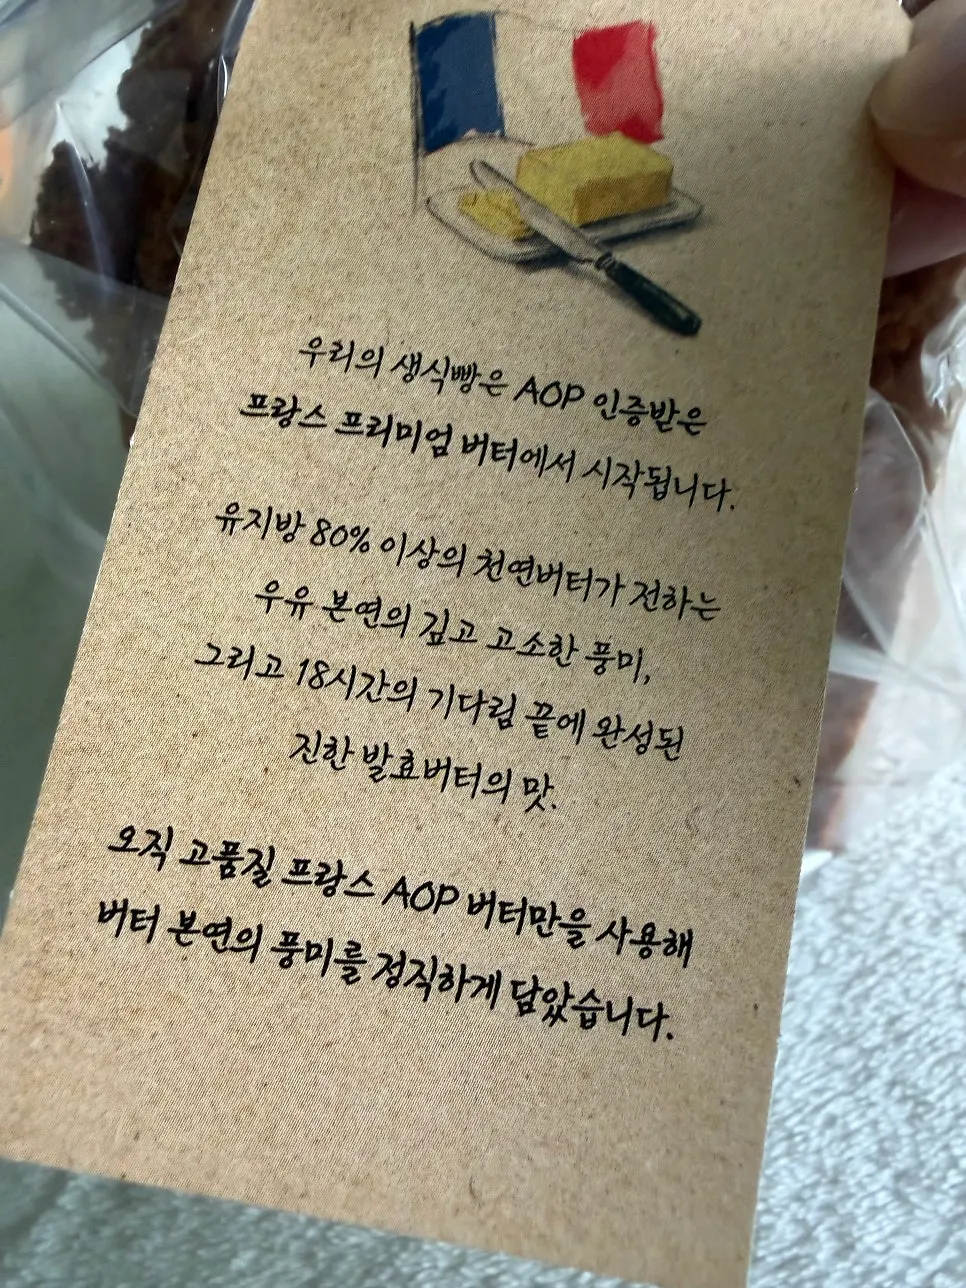 우리의 생식빵은 AOP 인증받은
프랑스 프리미엄 버터에서 시작됩니다.
유지방 80% 이상의 천연버터가 전하는
우유 본연의 깊고 고소한 풍미,
그리고 18시간의 기다림 끝에 완성된
진한 발효버터의 맛.
오직 고품질 프랑스 AOP 버터만을 사용해
버터 본연의 풍미를 정직하게 담았습니다.